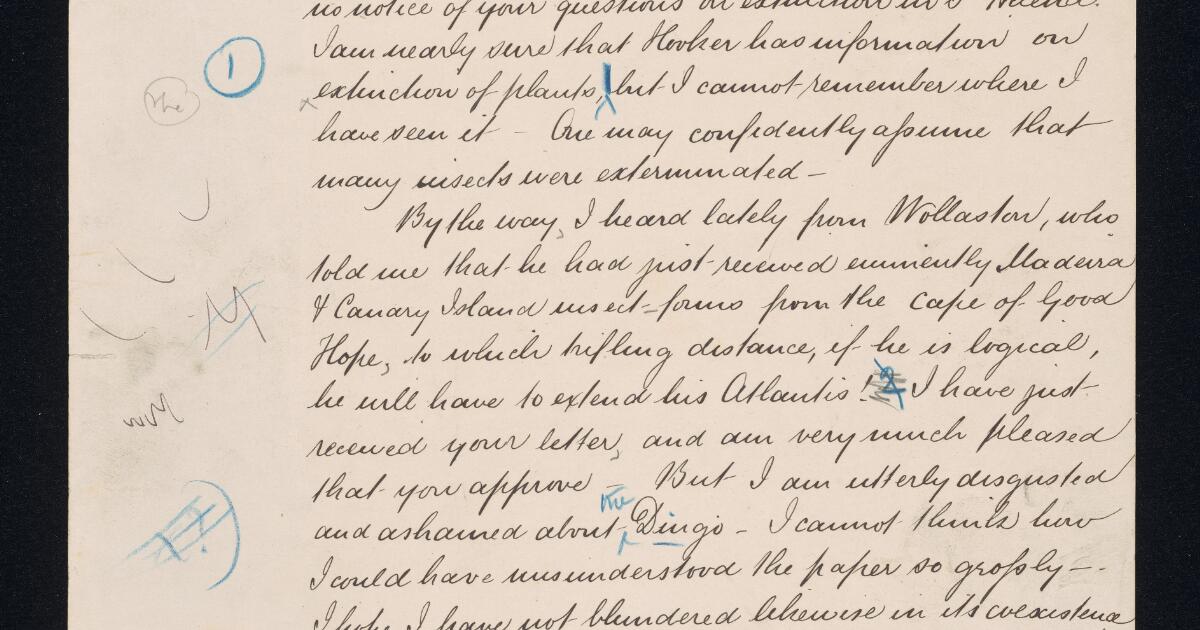 no notice of your questions on extinction in S Helena.
1
I am nearly sure that Hooker has information on
the
extinction of plants, but I cannot remember where I
have seen it – One may confidently assume that
many insects were exterminated –
By the way, I heard lately from Wollaston, who
told me that he had just received eminently Madeira
& Canary Island insect-forms from the Cape of Good
Hope, to which trifling distance, if he is logical,
he will have to extend his Atlantis! I have just
received your letter, and am very much pleased
that you approve – But I am utterly disgusted
the
and ashamed about Dingo – I cannot think how
I could have misunderstood the paper so grossly –
I hope I have not blundered likewise in its coexistence